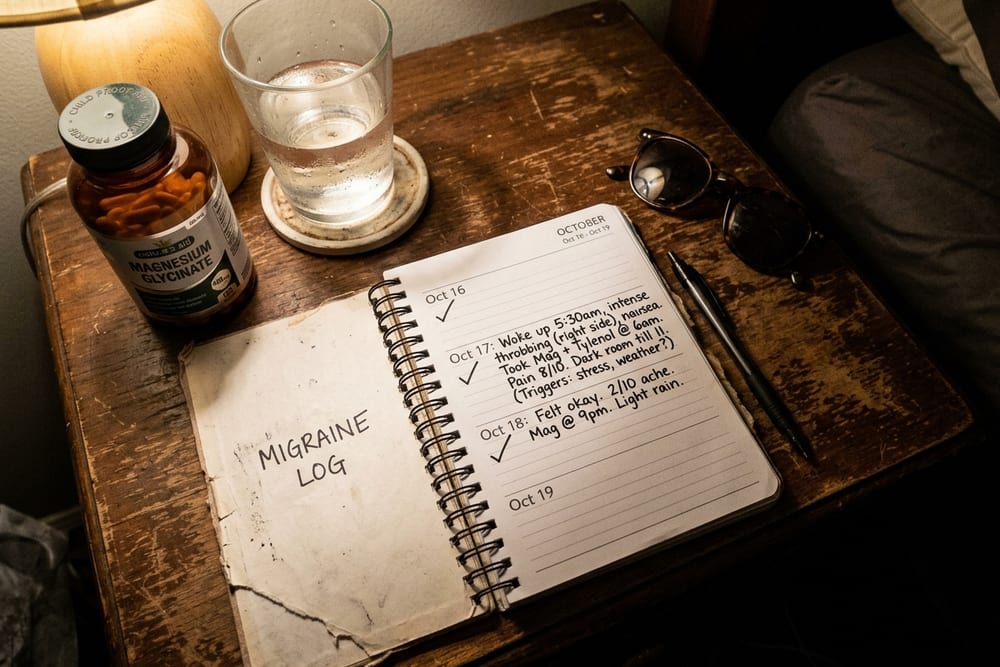 MAGNESIUM
GLYCINATE
MIGRAINE
LOG
OCTOBER
Oct 16 - Oct 19
Oct 16
✓
Oct 17: Woke up 5:30am, intense
throbbing (right side), nausea.
Took Mag + Tylenol @ 6am.
Pain 8/10. Dark room till 11.
(Triggers: stress, weather?)
✓
Oct 18: Felt okay. 2/10 ache.
Mag @ 9pm. Light rain.
✓
Oct 19